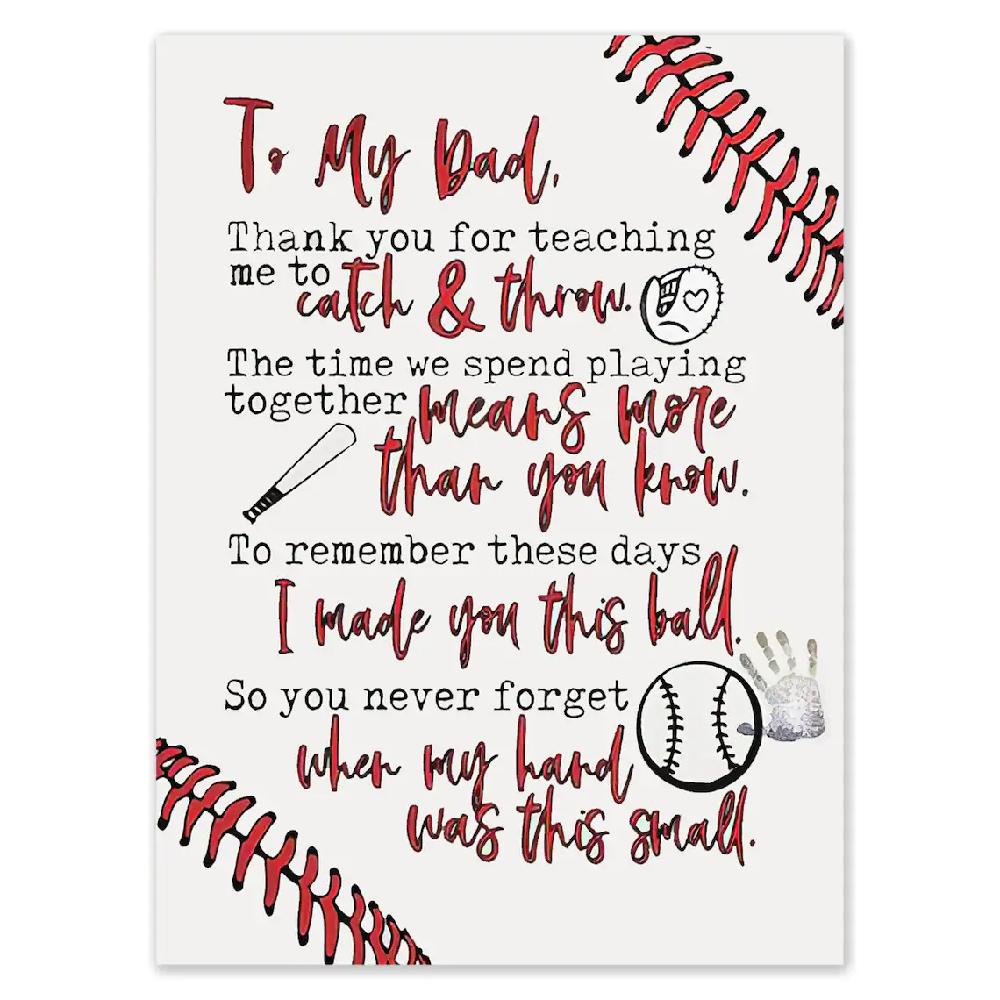 To My Dad,
Thank you for teaching
me to catch & throw.
The time we spend playing
together means more
than you know.
To remember these days
I made you this ball.
So you never forget
when my hand
was this small.